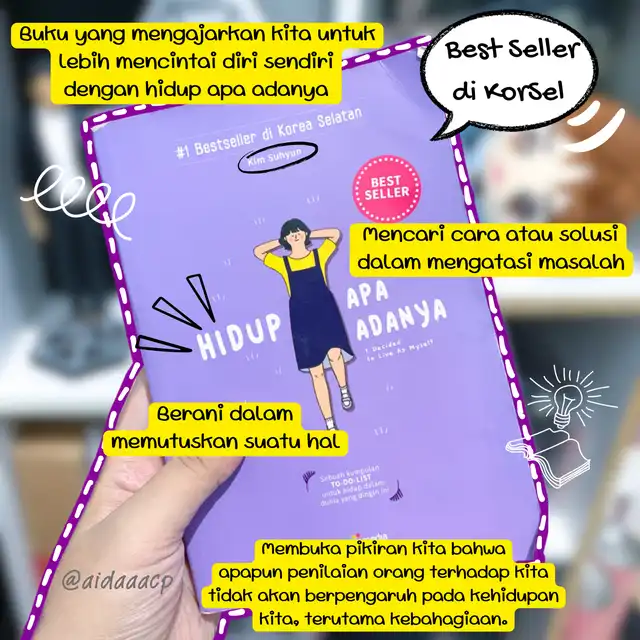 Buku yang mengajarkan kita untuk
lebih mencintai diri sendiri
dengan hidup apa adanya
Best Seller
di Korsel
#1 Bestseller di Korea Selatan
Kim Suhyun
BEST
SELLER
Mencari cara atau solusi
dalam mengatasi masalah
HIDUP
APA
ADANYA
I Decided
to Live As Myself
Berani dalam
memutuskan suatu hal
Sebuah kumpulan
TO-DO-LIST
untuk hidup dalam
dunia yang dingin ini
Membuka pikiran kita bahwa
apapun penilaian orang terhadap kita
tidak akan berpengaruh pada kehidupan
kita, terutama kebahagiaan.
@aidaaacp